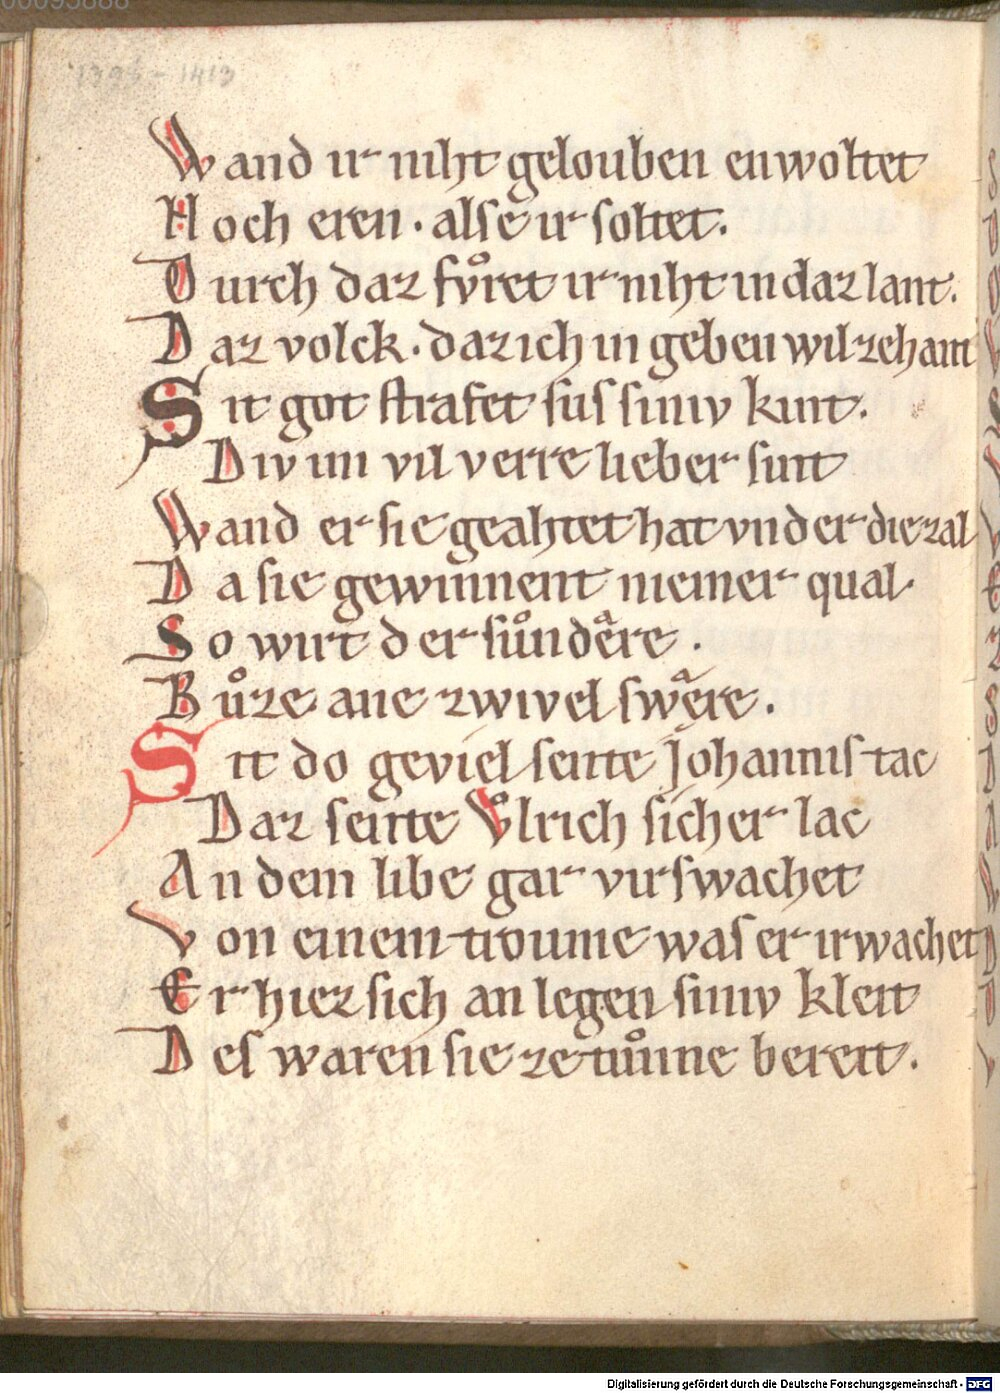 00095888
1395 - 1413
Wand ir niht gelouben enwoltet
Noch eren · alse ir soltet.
Durch daz fvͦret ir niht in daz lant.
Daz volck · daz ich in geben wil zehant
Sit got strafet sus siniv kint.
Div im vil verre lieber sint
Wand er sie geahtet hat vnd er die zal
Da sie gewinnent niemer qual.
So wirt der suͦndeͣre.
Buͦze ane zwivel sweͣre.
Sit do geviel seinte Johannis tac
Daz seinte Vͦlrich sicher lac
An dem libe gar virswachet
Von einem troume was er irwachet
Er hiez sich an legen siniv kleit
Des waren sie ze tuͦnne bereit.
Digitalisierung gefördert durch die Deutsche Forschungsgemeinschaft - DFG